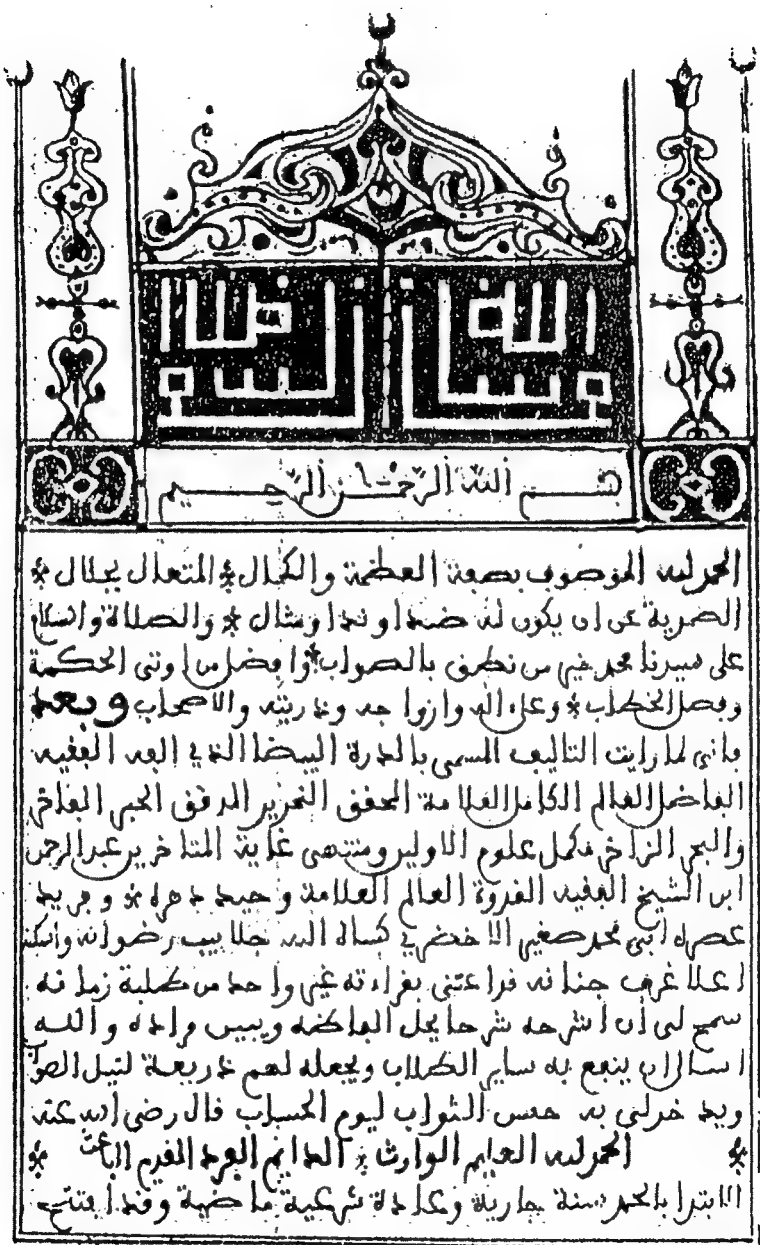 بسم الله
بسم الله الرحمن الرحيم
الحمد لله الموصوف بصفة العظمة والكمال * المتعال بجلال *
الصمدية عن ان يكون له ضد او ند او مثال * والصلاة والسلام
على سيدنا محمد خير من نطق بالصواب * وافضل من اوتي الحكمة
وفصل الخطاب * وعلى اله وازواجه وذريته والاصحاب وبعد
فاني لما رايت التاليف المسمى بالدرة البيضا الذي الفه الفقيه
الفاضل العالم الكامل العلامة المحقق النحرير المدقق الحبر الفاخر
والبحر الزاخر مكمل علوم الاولين ومنتهى غاية المتاخرين عبد الرحمن
ابن الشيخ الفقيه القدوة العالم العلامة وحيد دهره * وفريد
عصره ابي محمد صغير الاخضري كساه الله جلابيب رضوانه واسكنه
اعلا غرف جنانه قد اعتنى بقراءته غير واحد من طلبة زمانه
سمح لي أن اشرحه شرحا يحل الفاظه ويبين مراده والله
اسال ان ينفع به ساير الطلاب ويجعله لهم ذريعة لنيل الصواب
ويدخر لي به حسن الثواب ليوم الحساب قال رضي الله عنه
* الحمد لله العليم الوارث * الدايم الفرد القديم الباعث *
الابتدا بالحمد سنة جارية وعادة شرعية ماضية وقد افتتح